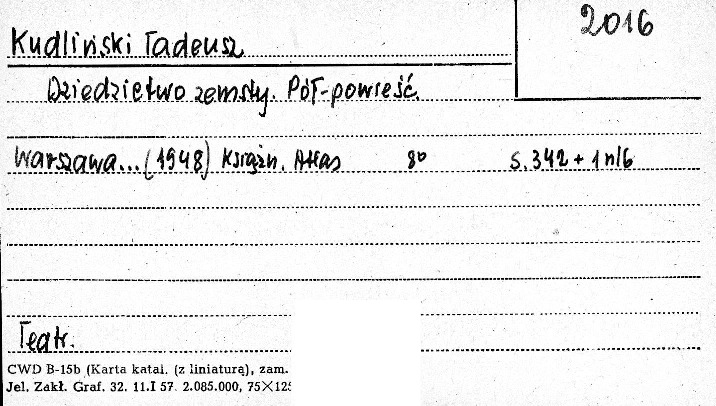 2016
Kudliński Tadeusz
Dziedzictwo zemsty. Pół-powieść.
Warszawa...(1948) Książn. Atlas 8o s.342 + 1 nlb
Teatr.
CWD B-15b (Karta katal. (z liniaturą), zam.
Jel. Zakł. Graf. 32. 11.I 57. 2.085.000, 75×125